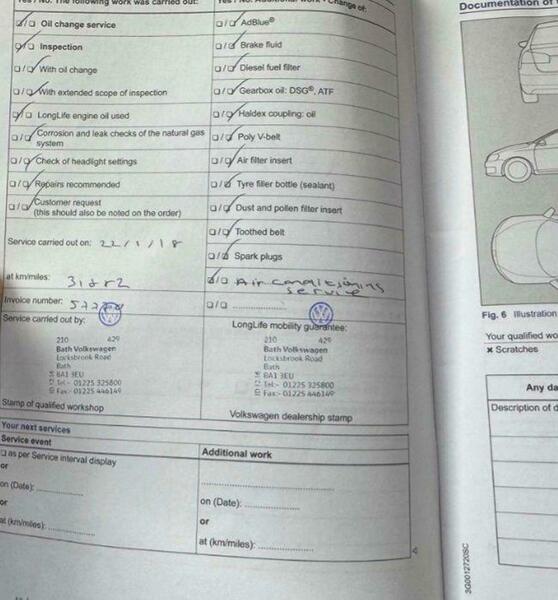 Yes / No: The following work was carried out:
Oil change service
Inspection
With oil change
With extended scope of inspection
LongLife engine oil used
Corrosion and leak checks of the natural gas
system
Check of headlight settings
Repairs recommended
Customer request
(this should also be noted on the order)
Service carried out on: 22/1/18
at km/miles:
Invoice number:
Service carried out by:
210 429
Bath Volkswagen
Locksbrook Road
Bath
BA1 3EU
Tel:- 01225 325800
Fax:- 01225 446149
Stamp of qualified workshop
Yes / No: Additional work - Change of:
AdBlue®
Brake fluid
Diesel fuel filter
Gearbox oil: DSG®, ATF
Haldex coupling: oil
Poly V-belt
Air filter insert
Tyre filler bottle (sealant)
Dust and pollen filter insert
Toothed belt
Spark plugs
Air conditioning
service
LongLife mobility guarantee:
210 429
Bath Volkswagen
Locksbrook Road
Bath
BA1 3EU
Tel:- 01225 325800
Fax:- 01225 446149
Volkswagen dealership stamp
Your next services
Service event
as per Service interval display
or
on (Date):
or
at (km/miles):
Additional work
on (Date):
or
at (km/miles):
4
Documentation of
Fig. 6 Illustration
Your qualified
× Scratches
Any
Description of
3G0012720SC